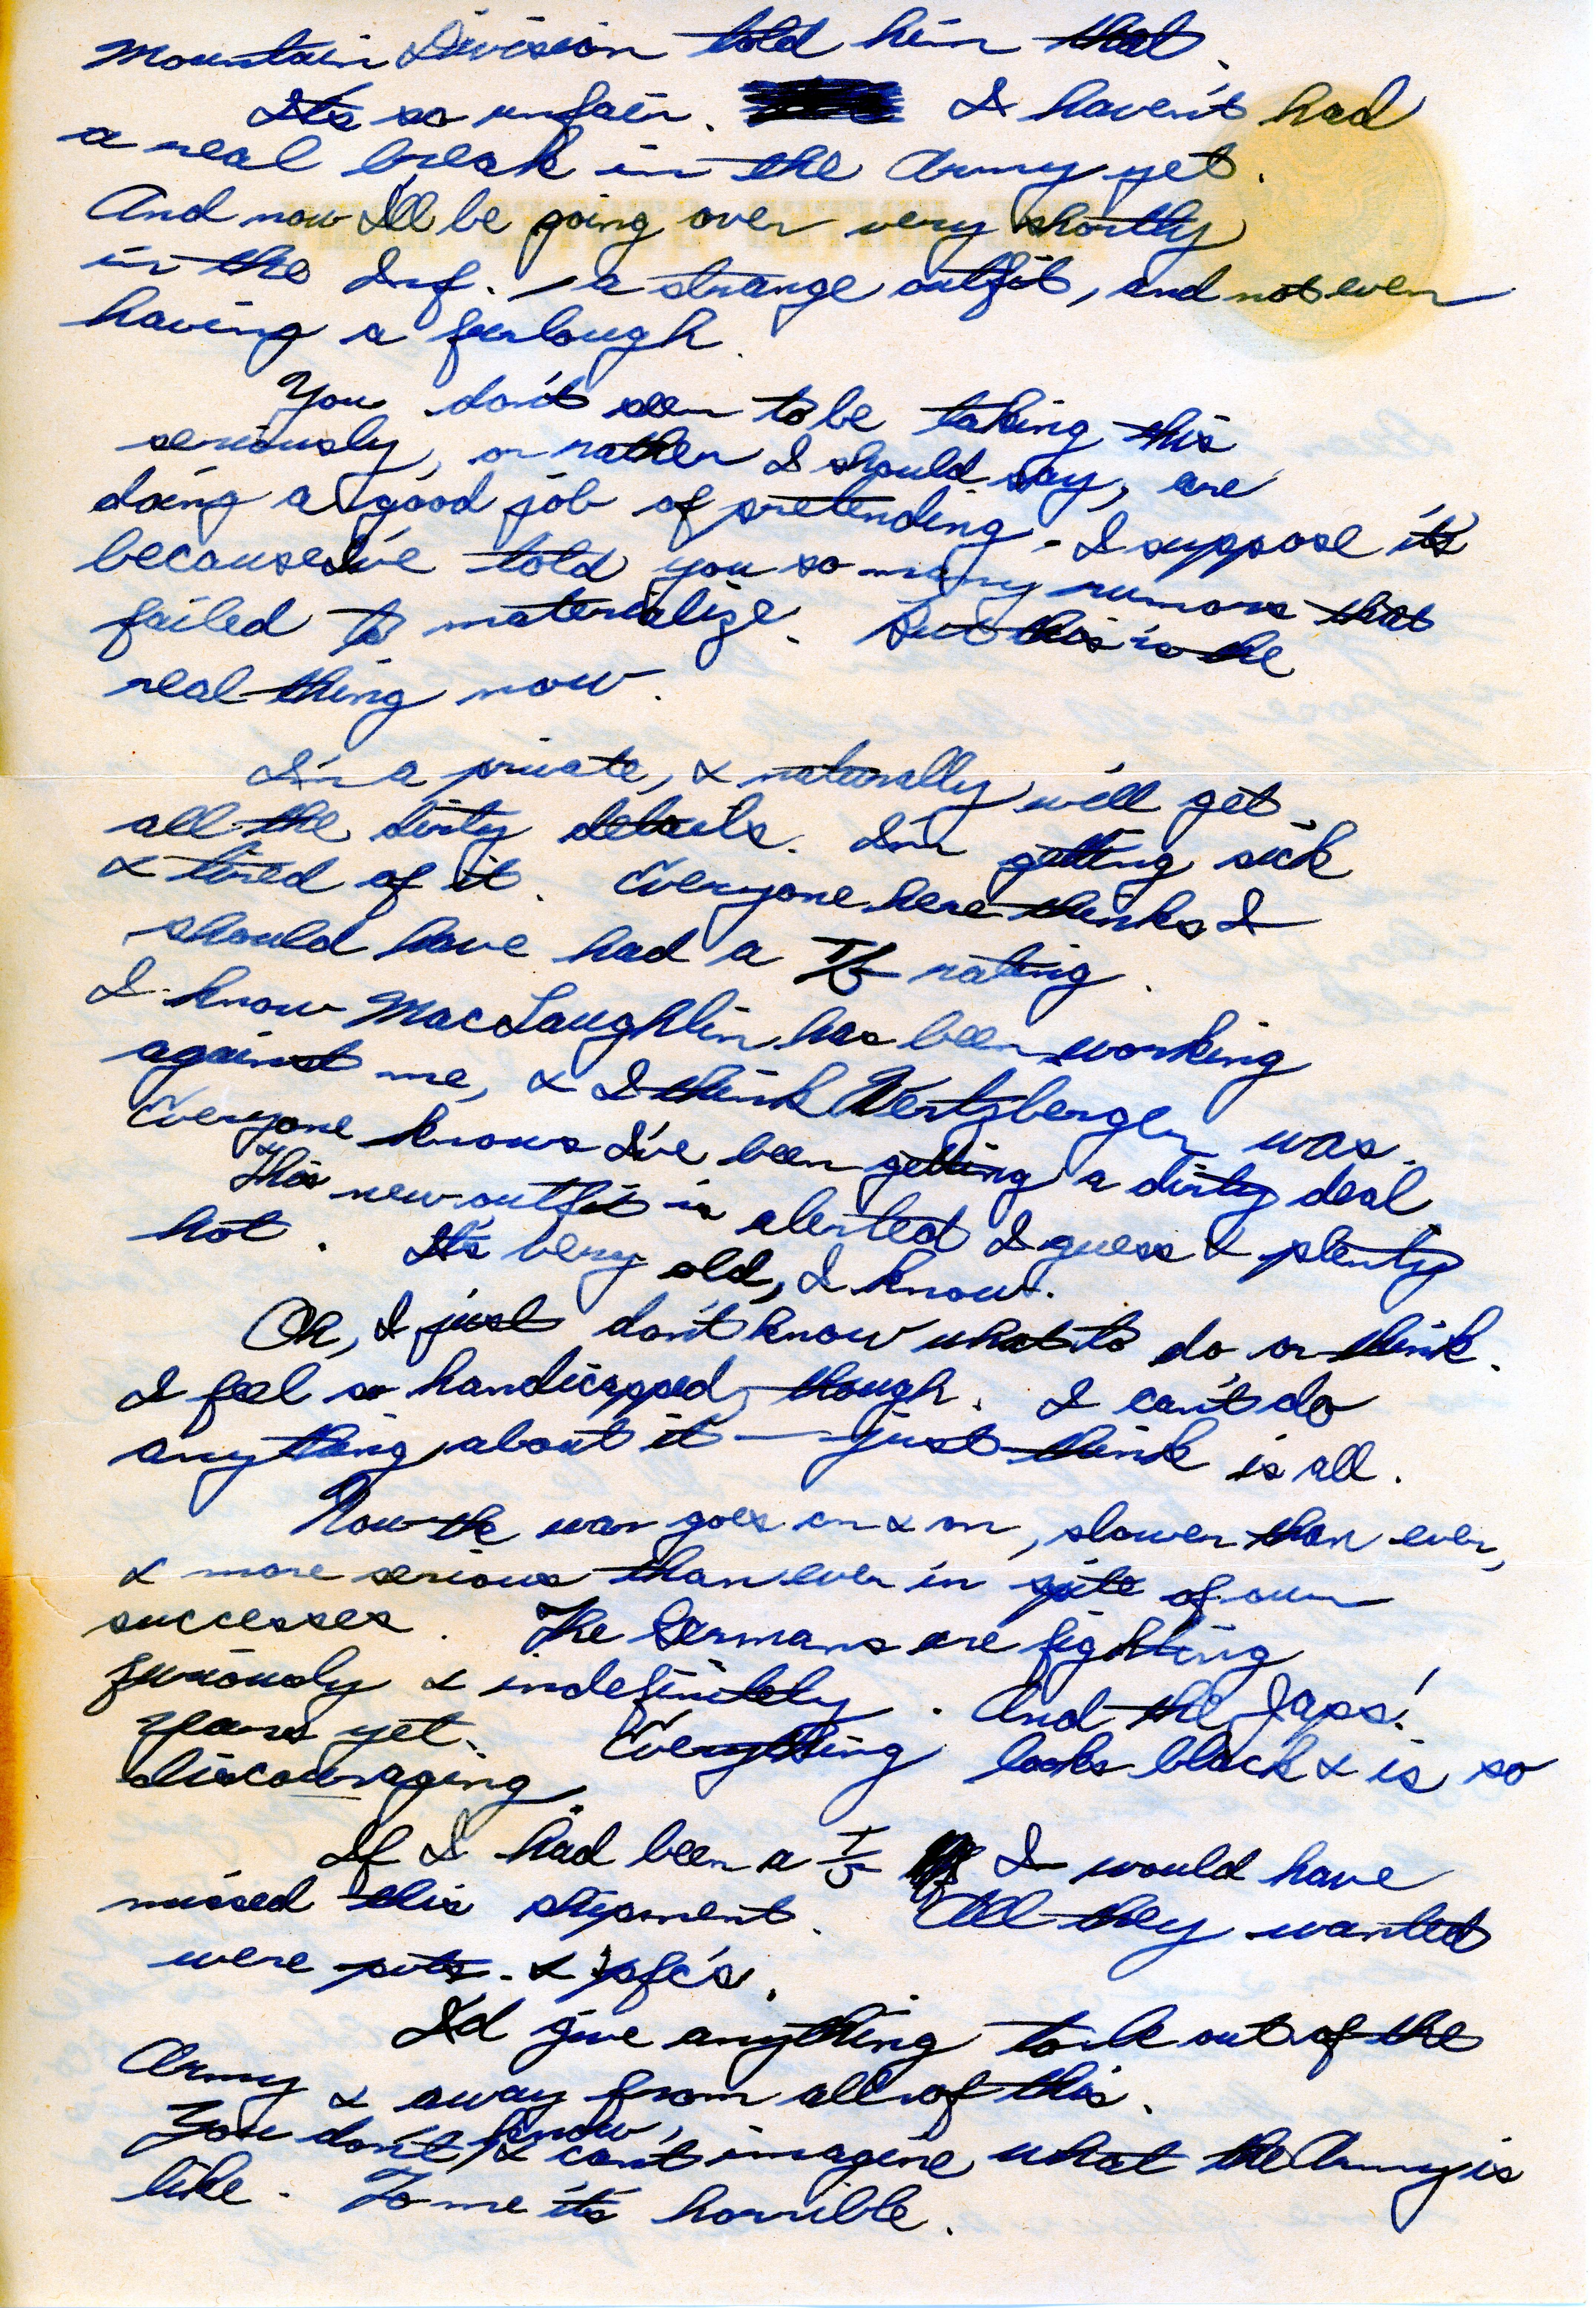 Mountain Division told him that.
It's so unfair. I haven't had
a real break in the Army yet.
And now I'll be going over very shortly
in the Inf. — a strange outfit, and not even
having a furlough.
You don't seem to be taking this
seriously, or rather I should say, are
doing a good job of pretending. I suppose it's
because I've told you so many rumors that
failed to materialize. But this is the
real thing now.
I'm a private, & naturally will get
all the dirty details. I'm getting sick
& tired of it. Everyone here thinks I
should have had a T/5 rating.
I know MacLaughlin has been working
against me, & I think Wertzberger was.
Everyone knows I've been getting a dirty deal
This new outfit is alerted I guess & plenty
hot. It's very old, I know.
Oh, I just don't know what to do or think.
I feel so handicapped, though. I can't do
anything about it — just think is all.
Now the war goes on & on, slower than ever,
& more serious than ever in spite of our
successes. The Germans are fighting
furiously & indefinitely. And the Japs!
Years yet. Everything looks black & is so
discouraging.
If I had been a T/5 I would have
missed this shipment. All they wanted
were pvts. & pfc's.
I'd give anything to be out of the
Army & away from all of this.
You don't know, & can't imagine what the Army is
like. To me it's horrible.